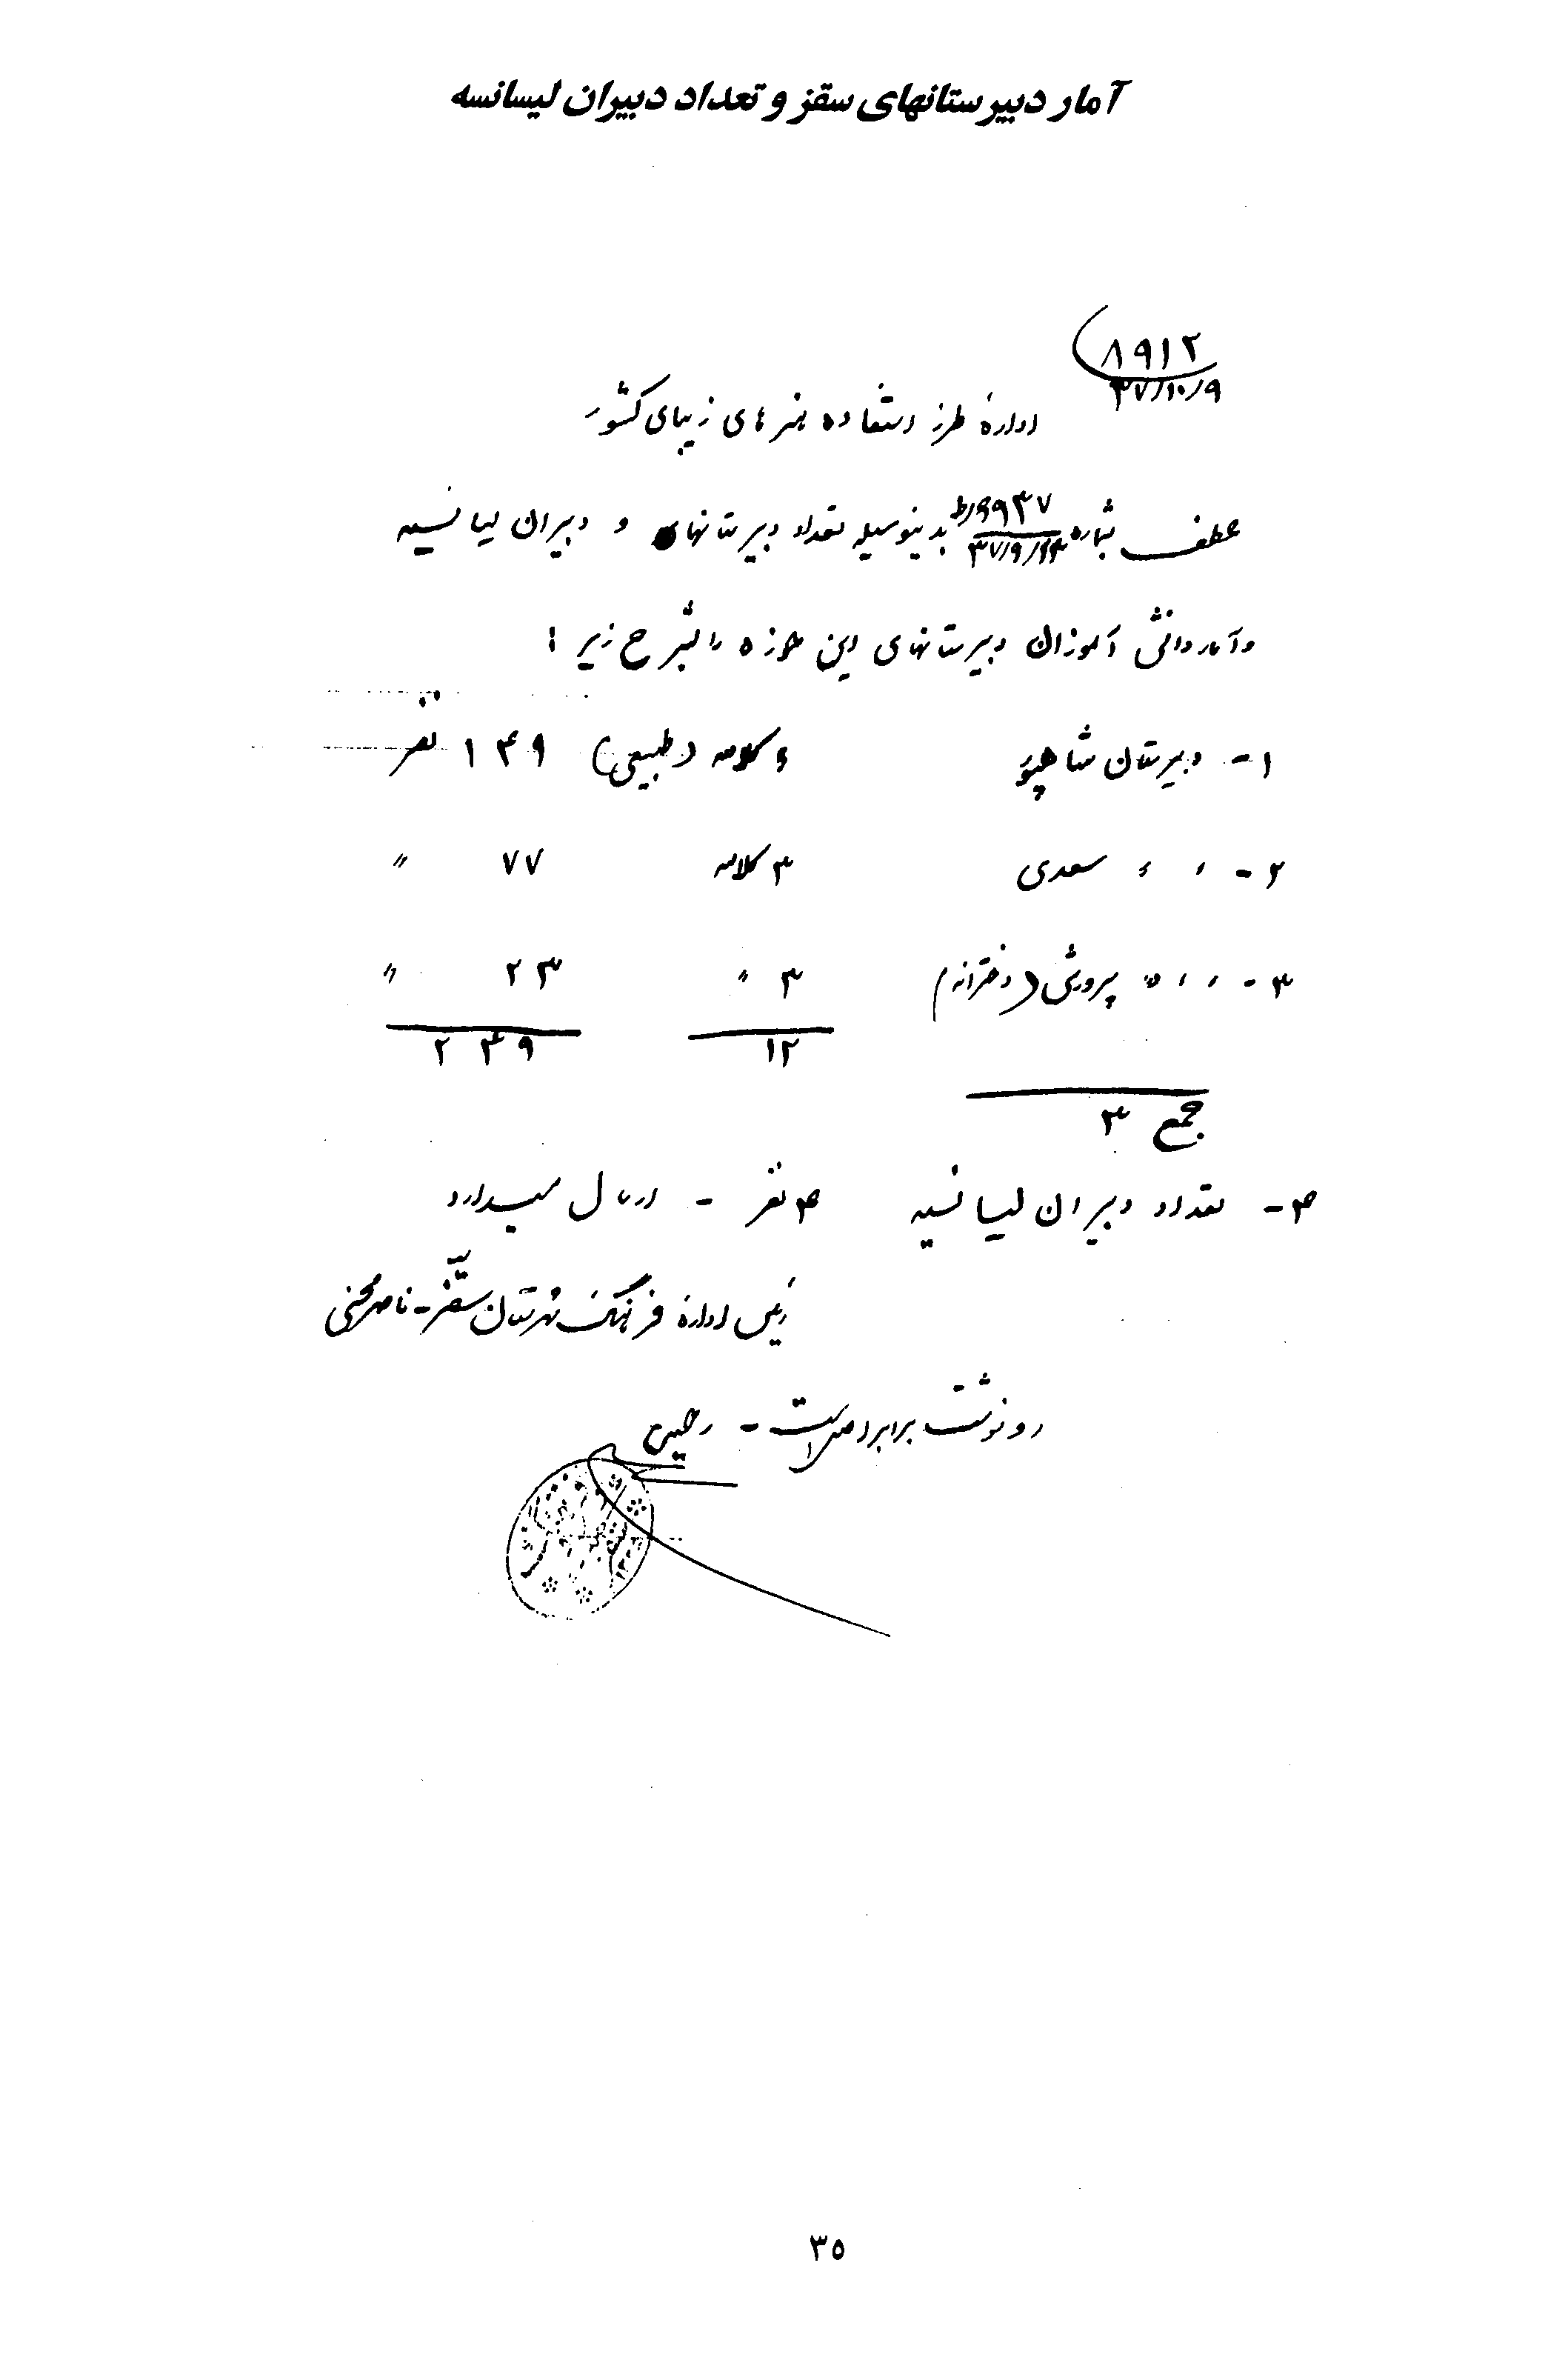 آمار دبیرستانهای سقز و تعداد دبیران لیسانسه
۸۹۱۲
۳۷/۱۰/۹
ادارهٔ طرز استفاده هنرهای زیبای کشور
عطف بشماره ۳۷/۹/۲۳ بدینوسیله تعداد دبیرستانهای و دبیران لیسانسیه
و آمار دانش آموزان دبیرستانهای این حوزه را بشرح زیر :
۱- دبیرستان شاهپور ۶ کلاسه (طبیعی) ۱۴۹ نفر
۲- ٬ ٬ سعدی ۳ کلاسه ۷۷ ″
۳- ٬ ٬ ″ پرورش (دخترانه) ۳ ″ ۲۳ ″
۱۲ ۲۴۹
جمع ۳
۴- تعداد دبیران لیسانسیه ۴ نفر - ارسال میدارد
رئیس ادارهٔ فرهنگ شهرستان سقز - ناصر محسنی
رونوشت برابر اصل است - رحیمی
۳۵